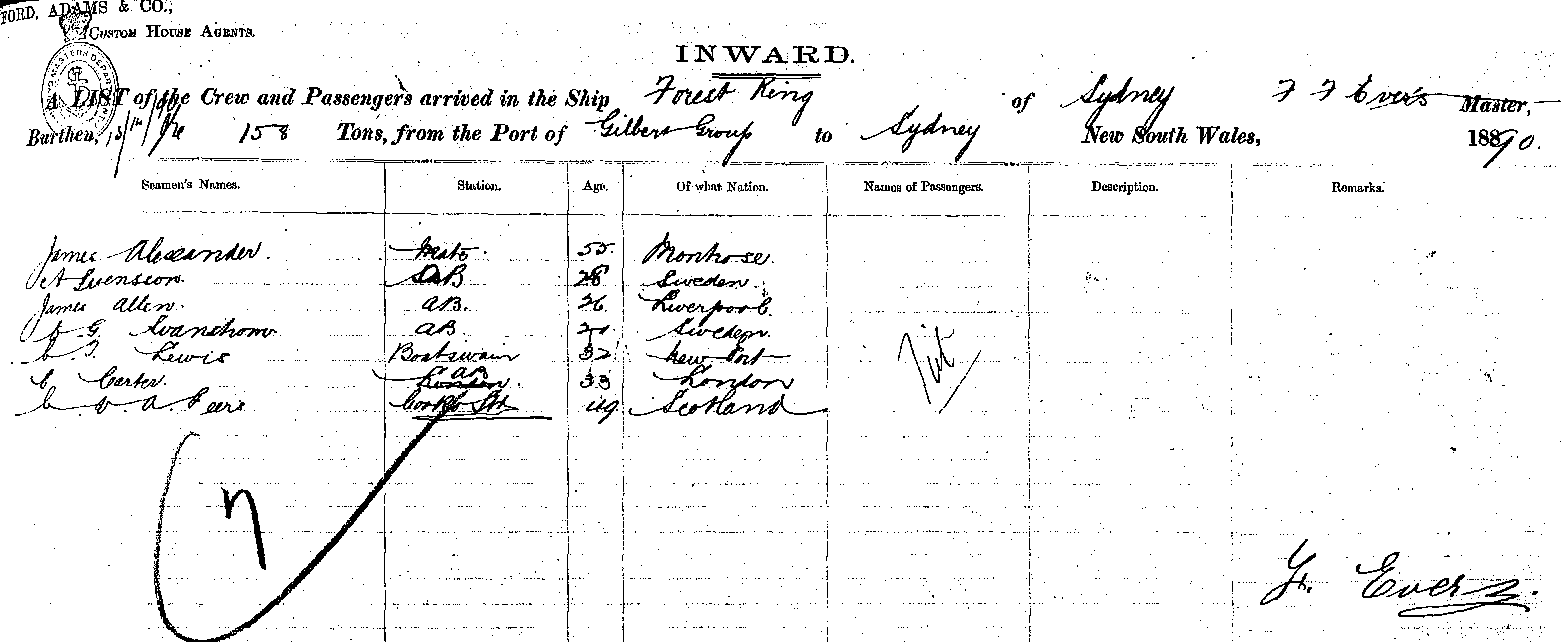 FORD, ADAMS & CO.,
CUSTOM HOUSE AGENTS.
INWARD.
A LIST of the Crew and Passengers arrived in the Ship Forest King of Sydney F F Evers Master,
Burthen, 158 Tons, from the Port of Gilbert Group to Sydney New South Wales, 1890.
Seamen's Names. Station. Age. Of what Nation. Names of Passengers. Description. Remarks.
James Alexander. Mate. 55 Montrose.
A Svensson. AB 28 Sweden.
James Allen. AB. 26 Liverpool.
G. Svanstrom AB Sweden.
Lewis Boatswain 32 New Port
C Carter. AB London. 33 London
C. A. Peers Scotland
Nil
7
Evers.